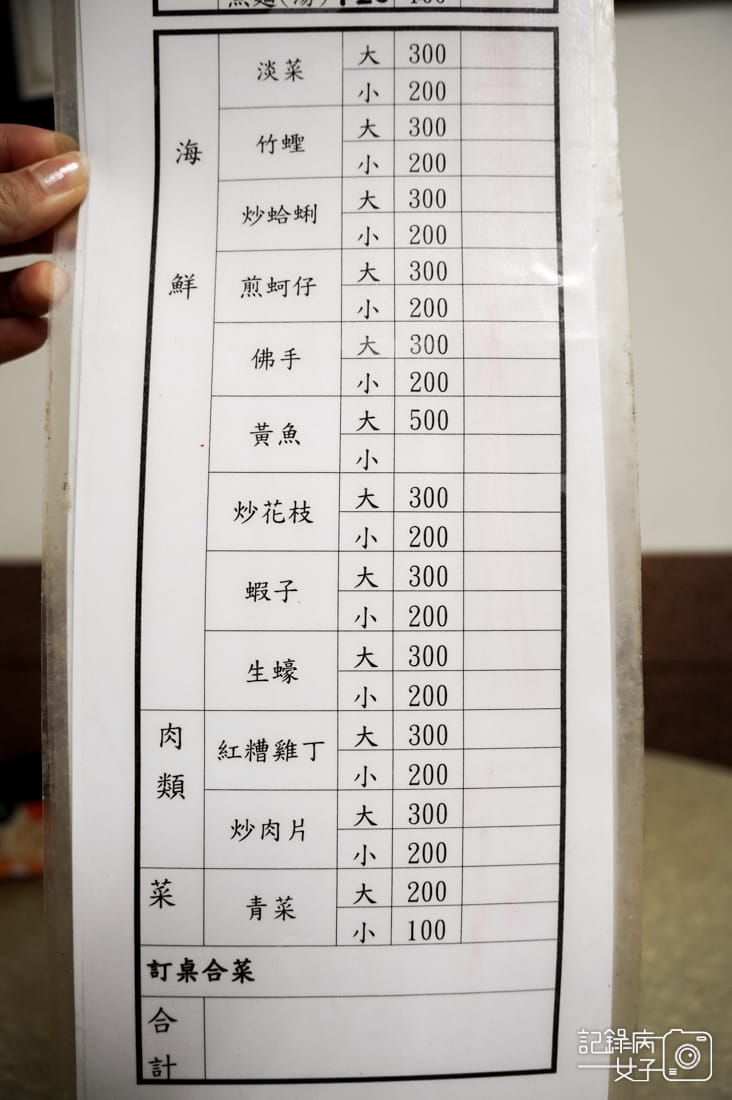 海鮮
淡菜 大 300
小 200
竹蟶 大 300
小 200
炒蛤蜊 大 300
小 200
煎蚵仔 大 300
小 200
佛手 大 300
小 200
黃魚 大 500
小
炒花枝 大 300
小 200
蝦子 大 300
小 200
生蠔 大 300
小 200
肉類
紅糟雞丁 大 300
小 200
炒肉片 大 300
小 200
菜
青菜 大 200
小 100
訂桌合菜
合計
記錄病
女子